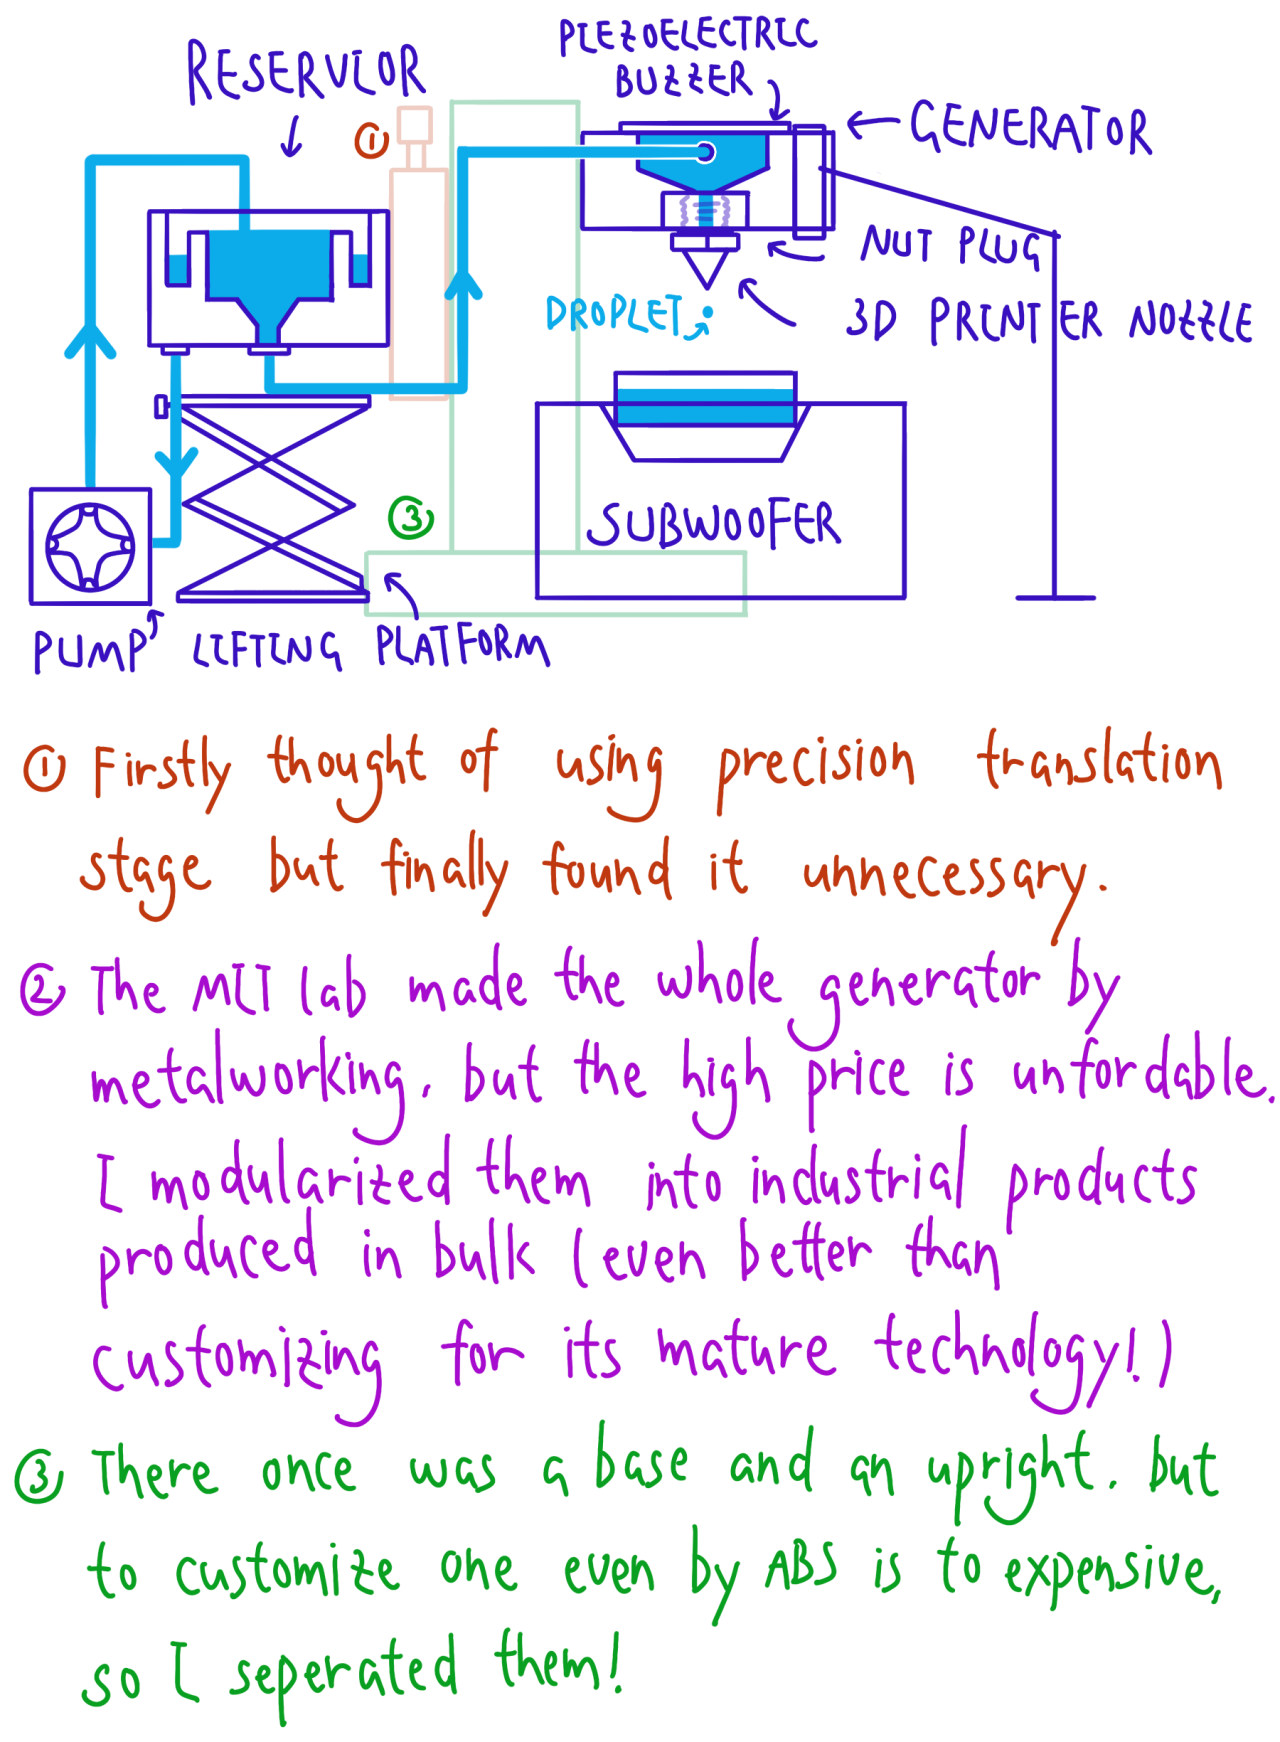 PIEZOELECTRIC
BUZZER
RESERVIOR
GENERATOR
①
NUT PLUG
DROPLET
3D PRINTER NOZZLE
③
SUBWOOFER
PUMP
LIFTING PLATFORM
① Firstly thought of using precision translation
stage but finally found it unnecessary.
② The MIT lab made the whole generator by
metalworking, but the high price is unfordable.
I modularized them into industrial products
produced in bulk (even better than
customizing for its mature technology!)
③ There once was a base and an upright. but
to customize one even by ABS is to expensive,
so I seperated them!